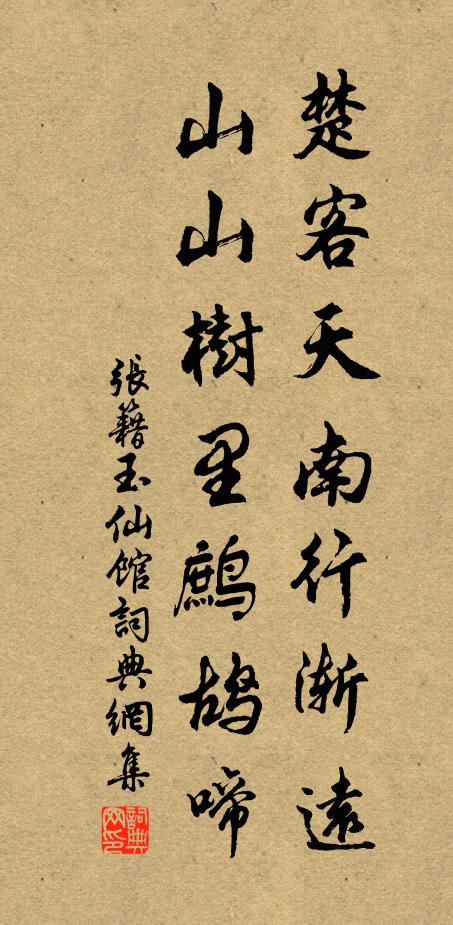 楚客天南行渐遠
山山樹里鷓鴣啼
張籍玉仙館詞典網集
詞典网印